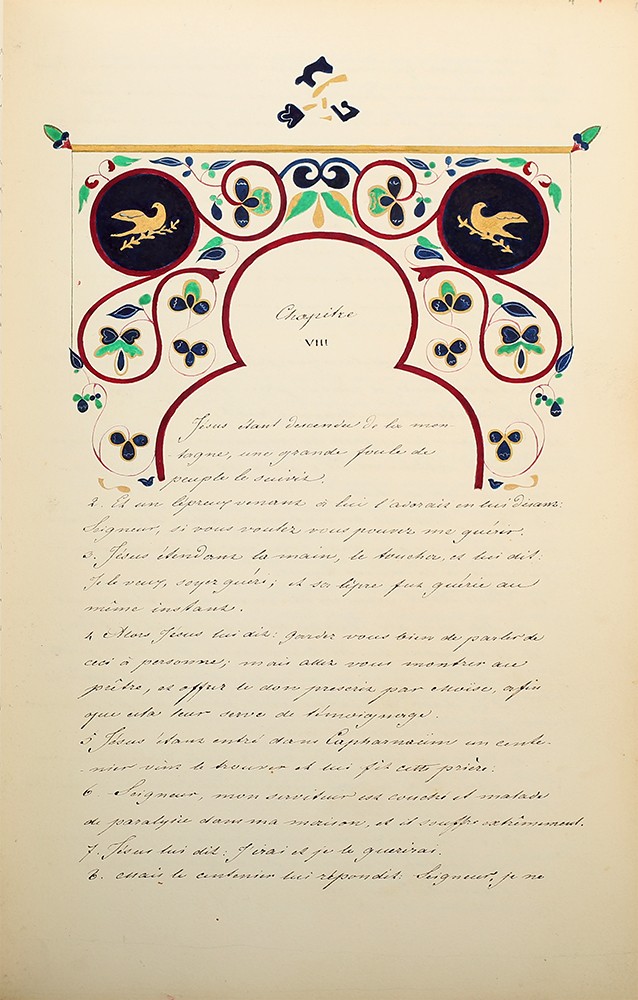 Chapitre
VIII
Jésus étant descendu de la mon-
-tagne, une grande foule de
peuple le suivit.
2. Et un lépreux venant à lui l'adorait en lui disant:
Seigneur, si vous voulez vous pouvez me guérir.
3. Jésus étendant la main, le toucha, et lui dit:
Je le veux, soyez guéri; et sa lèpre fut guérie au
même instant.
4 Alors Jésus lui dit: gardez vous bien de parler de
ceci à personne; mais allez vous montrer au
prêtre, et offrez le don prescrit par Moïse, afin
que cela leur serve de témoignage.
5 Jésus étant entré dans Capharnaüm un cente-
-nier vint le trouver et lui fit cette prière:
6. Seigneur, mon serviteur est couché et malade
de paralysie dans ma maison, et il souffre extrêmement.
7. Jésus lui dit: J'irai et je le guérirai.
8. Mais le centenier lui répondit: Seigneur, je ne